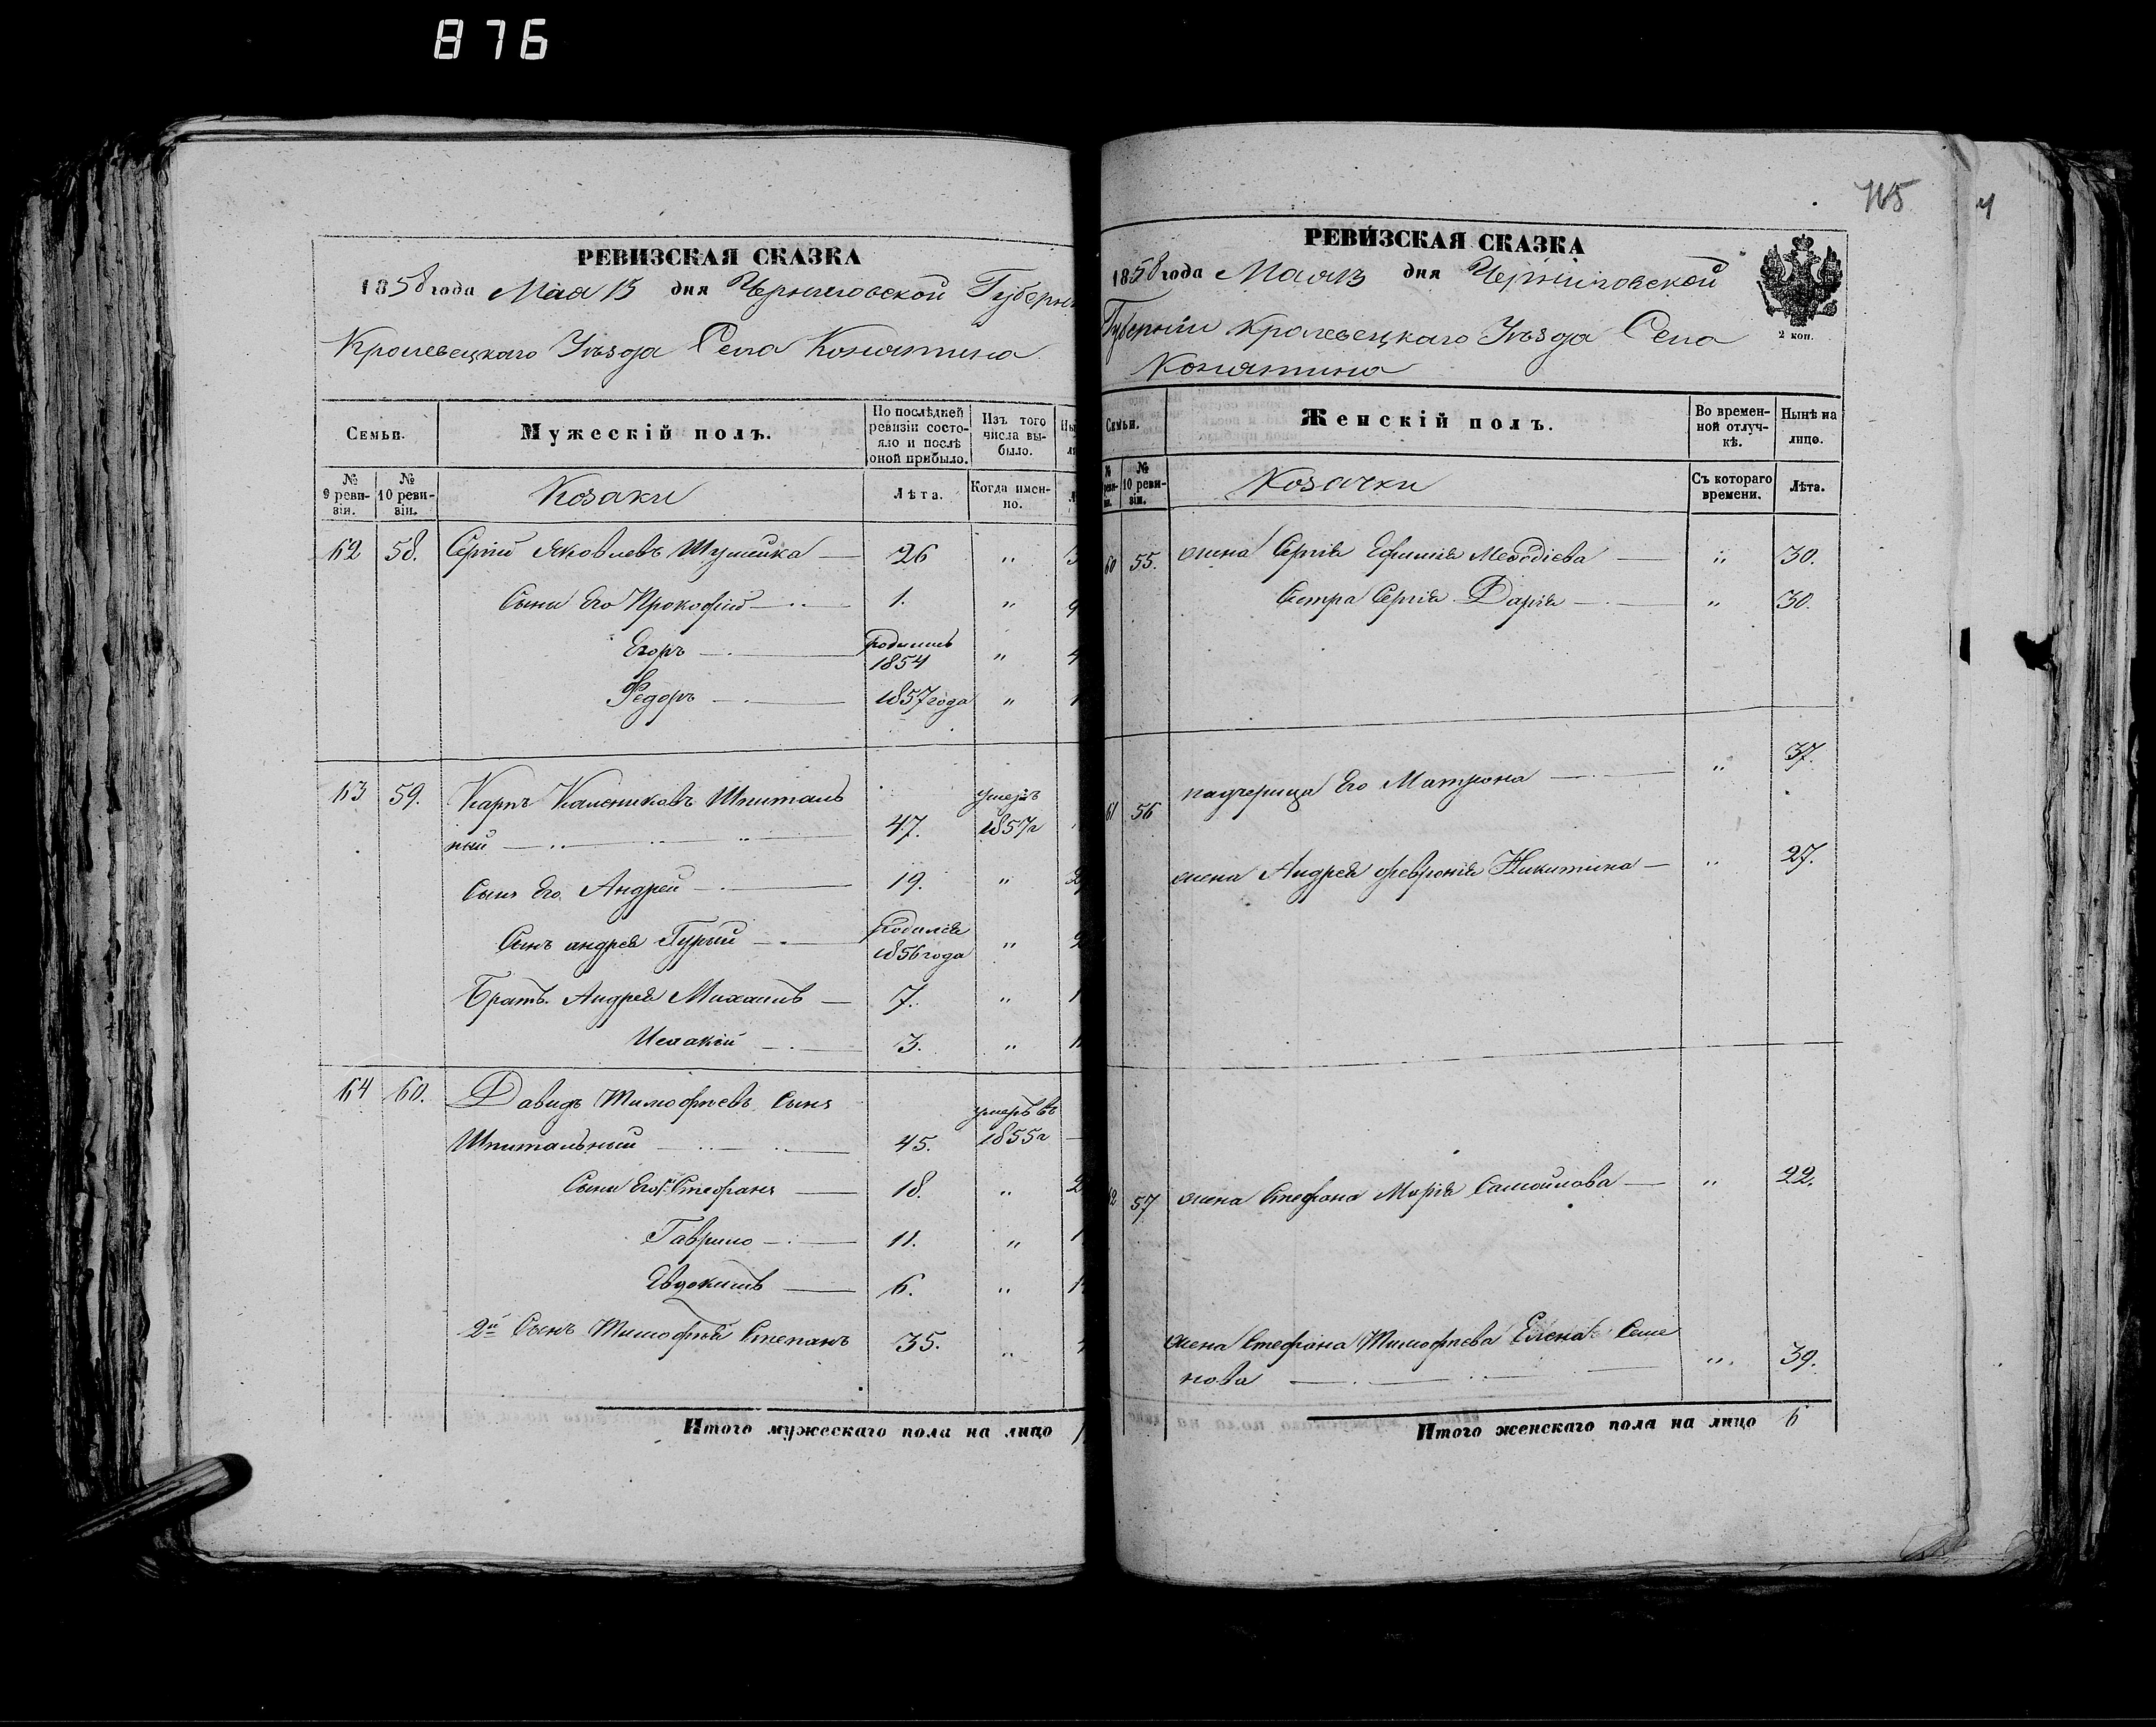 876
РЕВИЗСКАЯ СКАЗКА
1858 года Мая 13 дня Черниговской Губерн
Кролевецкаго Уезда Села Конятина
Семьи.
Мужескій полъ.
По послѣдней ревизіи состояло и послѣ оной прибыло.
Изъ того числа выбыло.
№ 9 ревизіи.
№ 10 ревизіи.
Козаки
Лѣта.
Когда именно.
62 58. Сергій Яковлевъ Шумейка 26 "
Сыни Его Прокофій 1. "
Егоръ родились 1854 "
Федоръ 1857 года "
63 59. Карпъ Калениковъ Шпиталь
ный 47. умеръ 1857 г
Сынъ Его Андрей 19. "
Сынъ андрея Гурій Родился 1856 года "
Братъ Андрея Михаилъ 7. "
Исаакій 3. "
64 60. Давидъ Тимофѣевъ Сынъ
Шпитальный 45. умеръ въ 1855 г
Сыни Его Стефанъ 18. "
Гаврило 11. "
Евдокимъ 6. "
2й Сынъ Тимофѣя Степанъ 35. "
Итого мужескаго пола на лицо
765
РЕВИЗСКАЯ СКАЗКА
1858 года Мая 13 дня Черниговской
Губерніи Кролевецкаго Уѣзда Села
Конятина
2 коп.
Семьи.
Женскій полъ.
Во временной отлучкѣ.
Нынѣ на лицо.
№ 10 ревизіи.
Козачки
Съ котораго времени.
Лѣта.
60 55. жена Сергія Ефимія Меѳодіева " 30.
Сестра Сергія Дарія " 30.
61 56 падчерица Его Матрона " 37.
жена Андрея Февронія Никитина " 27.
62 57 жена Стефана Марія Самойлова " 22.
жена Стефана Тимофѣева Елена Семе
нова " 39.
Итого женскаго пола на лицо 6